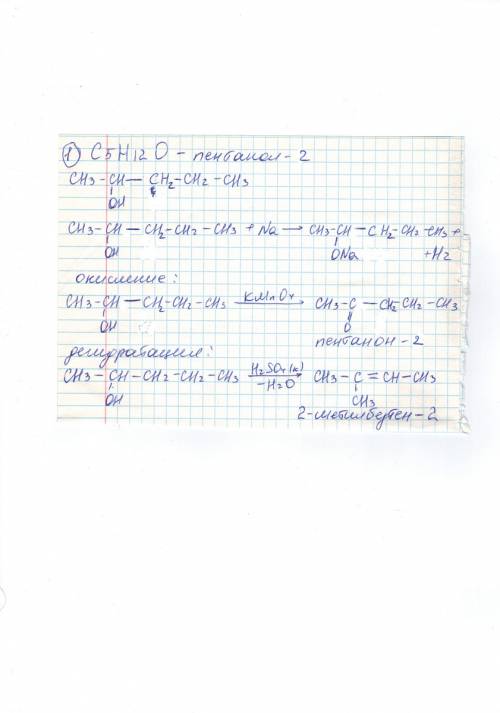 1) C5H12O - пентанол-2
CH3-CH-CH2-CH2-CH3
OH
CH3-CH-CH2-CH2-CH3 + Na → CH3-CH-CH2-CH2-CH3 +
OH ONa +H2
окисление:
CH3-CH-CH2-CH2-CH3 KMnO4 → CH3-C-CH2-CH2-CH3
OH O
пентанон-2
дегидратация:
CH3-CH-CH2-CH2-CH3 H2SO4(к) → CH3-C=CH-CH3
-H2O
OH CH3
2-метилбутен-2